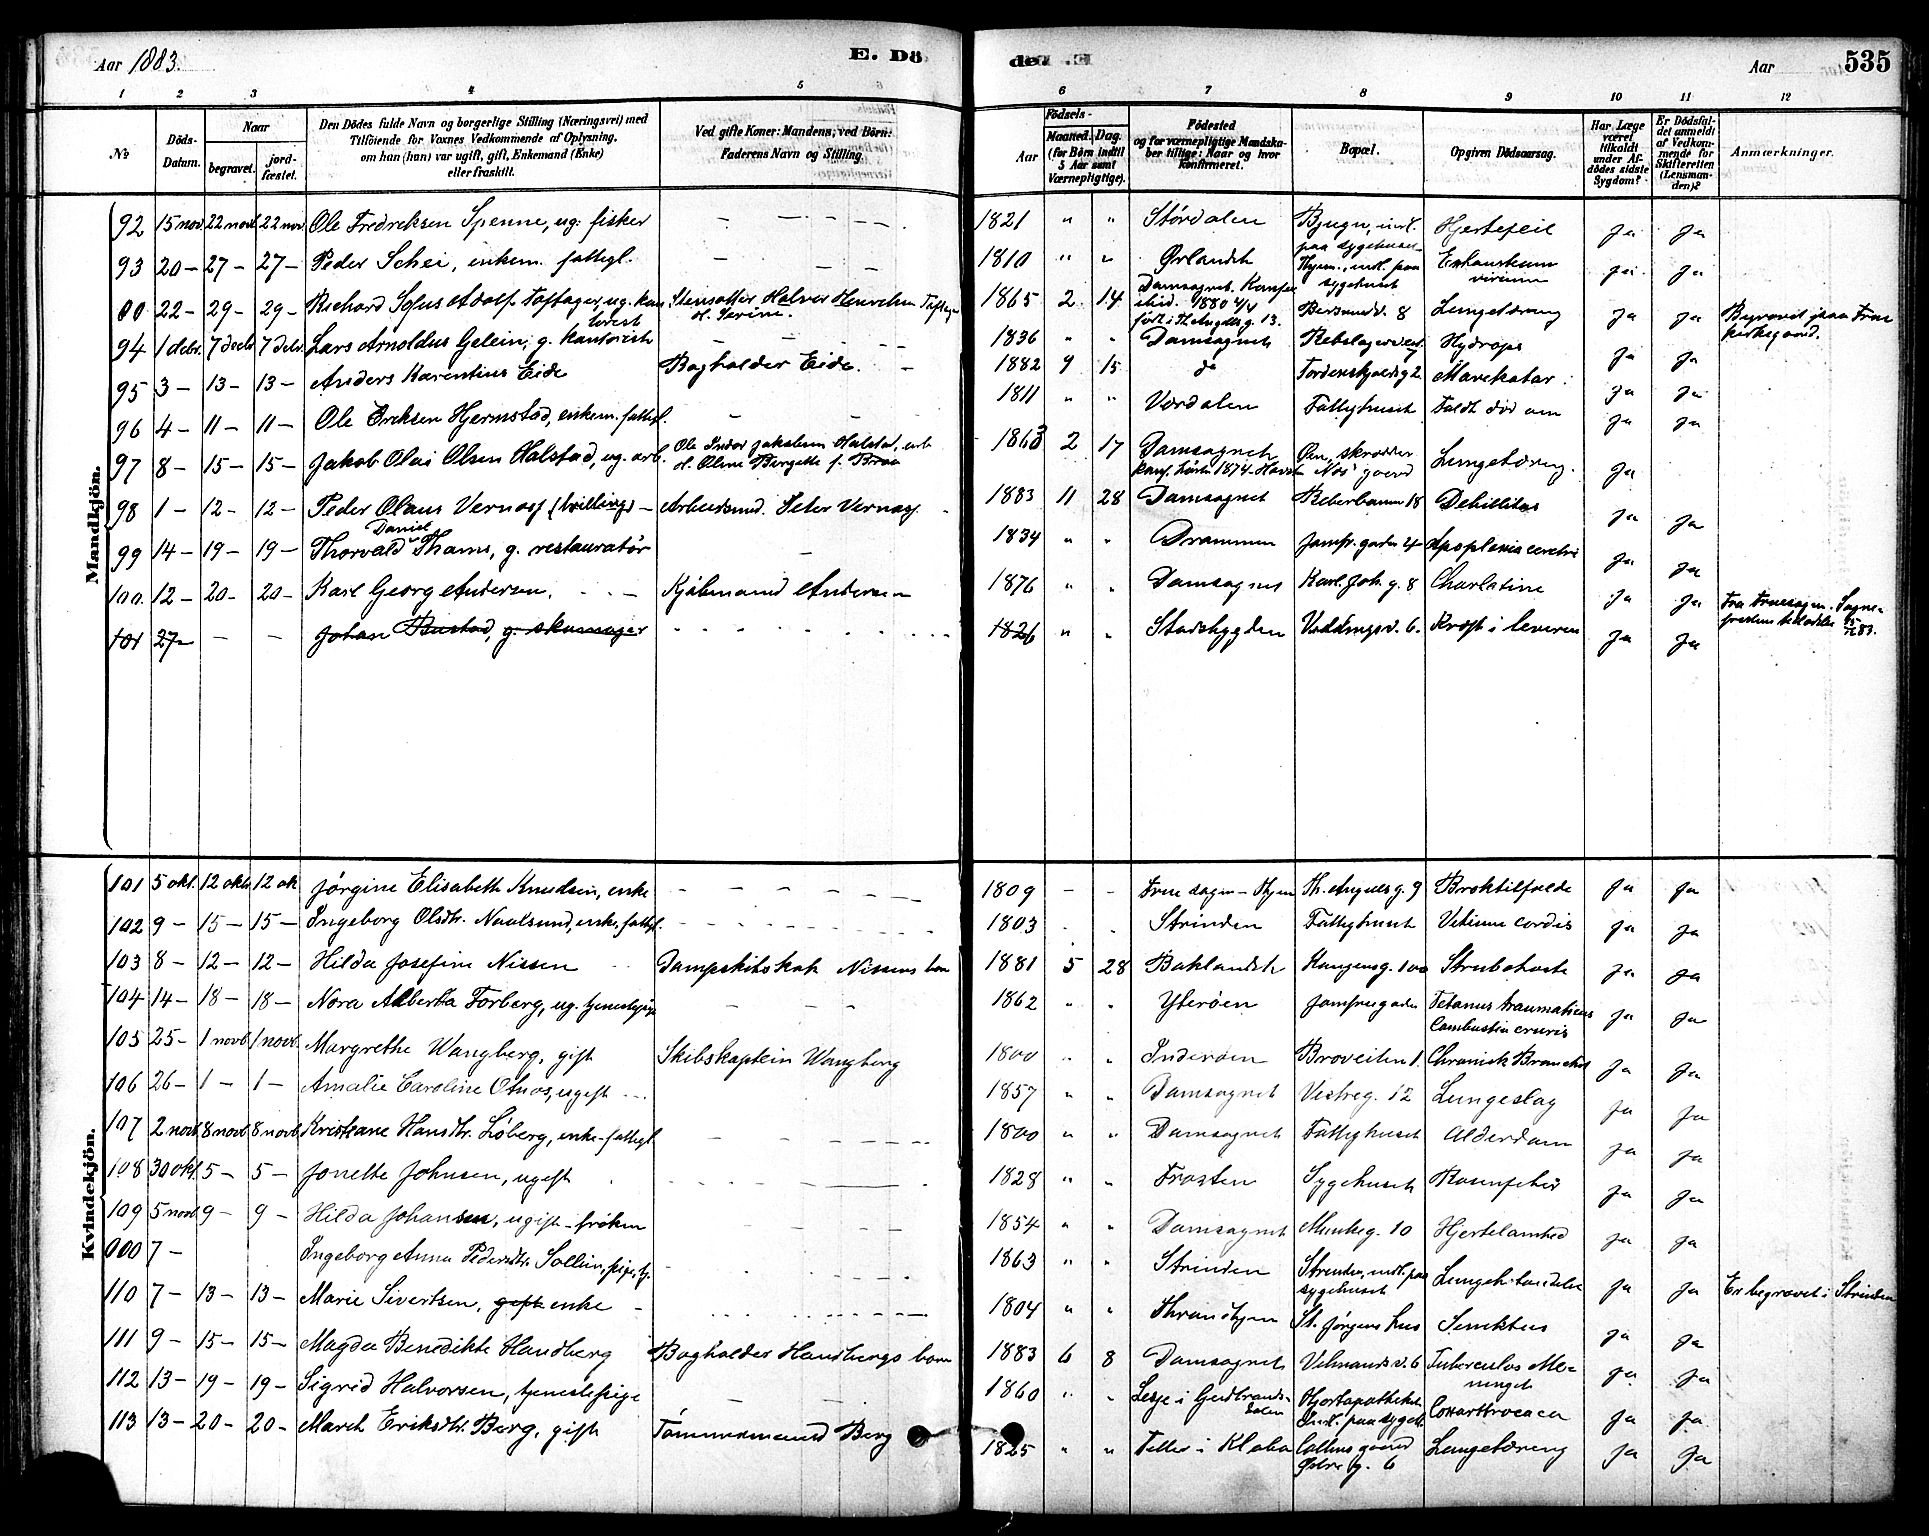 Aar 1883.
E. Dö
de.
Aar
535
1 2 3 4 5 6 7 8 9 10 11 12
№
Döds-Datum.
Naar
begravet.
jord-fæstet.
Den Dödes fulde Navn og borgerlige Stilling (Næringsvei) med
Tilföiende for Voxnes Vedkommende af Oplysning.
om han (hun) var ugift, gift, Enkemand (Enke)
eller fraskilt.
Ved gifte Koner: Mandens; ved Börn:
Faderens Navn og Stilling.
Födsels-
Aar
Maaned. Dag.
(for Börn indtil
5 Aar samt
Værnepligtige).
Födested
og for værnepligtige Mandska-
ber tillige: Naar og hvor
konfirmeret.
Bopæl.
Opgiven Dödsaarsag.
Har Læge
været
tilkaldt
under Af-
dödes sidste
Sygdom?
Er Dödsfal-
det anmeldt
af Vedkom-
mende for
Skifteretten
(Lensman-
den)?
Anmærkninger.
Mandkjön.
92 15 nov. 22 novb. 22 nov. Ole Fredriksen Spenne, ug. fisker 1821 " " Stördalen Bjugn, indl. paa sygehuset Hjertefeil Ja Ja
93 20 – 27 – 27 – Peder Schei, enkem. fattigl. 1810 " " Ørlandet Thjem., indl. paa sygehuset Exhaustum virium Ja Ja
00 22 – 29 – 29 – Richard Sofus Adolf Toftager, ug. Halver 1865 2 14 Domsognet 1880 født i Th. Angells g. 13. 8 Lungetæring Ja Ja
94 1 debr. 7 decbr. 7 debr. Lars Arnoldus Gelein, g. kantorist 1836 " " Domsognet Hydrops Ja Ja
95 3 – 13 – 13 – Anders Karentius Eide Bogholder Eide. 1882 9 15 do Tordenskjoldsg 2 Mavekatar Ja Ja
96 4 – 11 – 11 – Ole Eriksen Hjermstad, enkem. fattigl. 1811 " " Værdalen Fattighuset Faldt død om Ja Ja
97 8 – 15 – 15 – Jakob Olai Olsen Halstad, ug. arb. 1863 2 17 Domsognet Lungetæring. Ja
98 1 – 12 – 12 – Peder Olaus Vernøs (tvilling) – Arbeidsmd. Peter Vernøs 1883 11 28 Domsognet Reberbanen 18 Debilitas Ja Ja
99 14 – 19 – 19 – Thorvald Daniel Thams, g. restauratør 1834 " " Drammen Jomfr. gaden 4 Apoplexia cerebri Ja Ja
100. 12 – 20 – 20 – Karl Georg Andersen. Kjøbmand Andersen 1876 " " Domsognet Karl Joh. g. 8 Charlatine Ja Ja
101 27 – – – Johan Bustad, g. skomager 1826 " " Stadsbygden Vaddingsv. 6. Kræft i leveren Ja Ja
Kvindekjön.
101 5 okt. 12 okt. 12 ok Jørgine Elisabeth Knudsen, enke 1809 – – Frue sogn – Thjem Th. Angells g. 9 Broktilfælde Ja Ja
102 9 – 15 – 15 – Ingeborg Olsdtr. Naalsund, enke, fattigl. 1803 Strinden Fattighuset Vitium cordis Ja Ja
103 8 – 12 – 12 – Hilda Josefine Nissen Dampskibskok Nissens barn 1881 5 28 Baklandet Kongensg. 100 Strubehoste Ja Ja
104 14 – 18 – 18 – Nora Alberta Forberg, ug. tjenestepige 1862 " " Ytterøen Jomfrugaden Tetanus traumaticus Combustio cruris Ja Ja
105 25 – 1 novb. 1 novb. Margrethe Wangberg, gift Skibskaptein Wangberg 1800 " " Inderøen Broveiten 1. Chronisk Bronchit Ja Ja
106 26 – 1 – 1 – Amalie Caroline Otnes, ugift 1857 " " Domsognet Vestreg. 12 Lungeslag Ja Ja
107 2 novb. 8 novb. 8 novb. Kristiane Hansdtr. Løberg, enke – fattigl. 1800 " " Domsognet Fattighuset Alderdom Ja Ja
108 30 okt. 5 – 5 – Jonette Johnsen, ugift 1828 " " Frosten Sygehuset Rosenfeber Ja Ja
109 5 novb. 9 – 9 – Hilda Johansen, ugift – frøken 1854 " " Domsognet Munkeg. 10 Hjertelamhed Ja Ja
000 7 – Ingeborg Anna Pedersdtr. Sollien, pige, tj. 1863 Strinden Strinden, indl. paa sygehuset Lungebetændelse Ja Ja Er begravet i Strinden
110 7 – 13 – 13 – Marie Sivertsen, gift enke 1804 " " Throndhjem St. Jørgens hus Senektus Ja Ja
111 9 – 15 – 15 – Magda Benedikte Handberg Bogholder Handbergs barn 1883 6 8 Domsognet 6 Tuberculos Meninget Ja Ja
112 13 – 19 – 19 – Sigrid Halvorsen, tjenestepige 1860 " " Lesje i Gudbrandsdalen Hjorteapotheket indl. paa sygeh. Ja Ja
113 13 – 20 – 20 – Marit Eriksdtr. Berg, gift Tømmermand Berg 1825 " " Tiller i Klæbo gaard Østre g. 6 Lungetæring Ja Ja